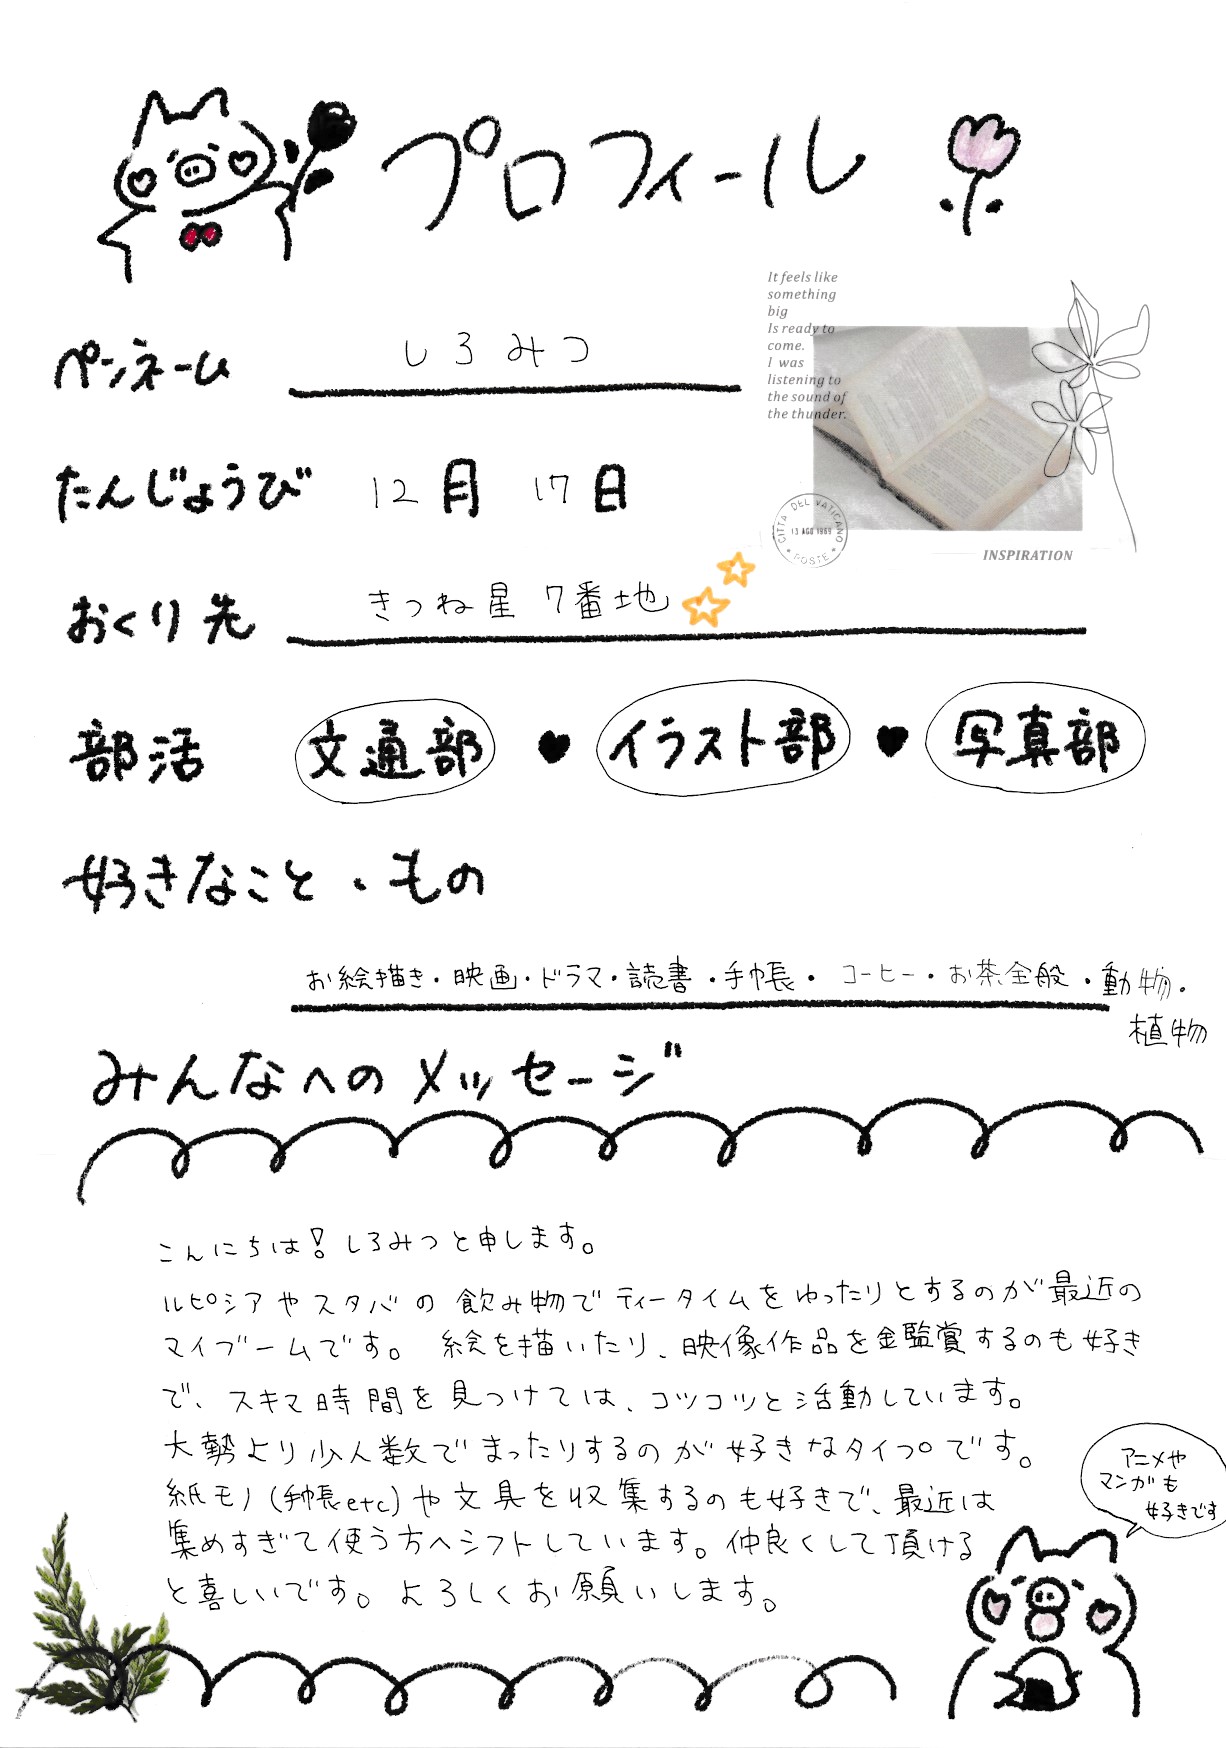 プロフィール
It feels like
something
big
Is ready to
come.
I was
listening to
the sound of
the thunder.
ペンネーム しろみつ
たんじょうび 12月 17日
CITTA DEL VATICANO
13 AGO 1969
POSTE
INSPIRATION
おくり先 きつね星 7番地
部活 文通部 ♥ イラスト部 ♥ 写真部
好きなこと・もの
お絵描き・映画・ドラマ・読書・手帳・コーヒー・お茶全般・動物・
植物
みんなへのメッセージ
こんにちは!しろみつと申します。
ルピシアやスタバの飲み物でティータイムをゆったりとするのが最近の
マイブームです。絵を描いたり、映像作品を金監賞するのも好き
で、スキマ時間を見つけては、コツコツと活動しています。
大勢より少人数でまったりするのが好きなタイプです。
紙モノ(手帳etc)や文具を収集するのも好きで、最近は
集めすぎて使う方へシフトしています。仲良くして頂ける
と喜しいです。よろしくお願いします。
アニメや
マンガも
好きです